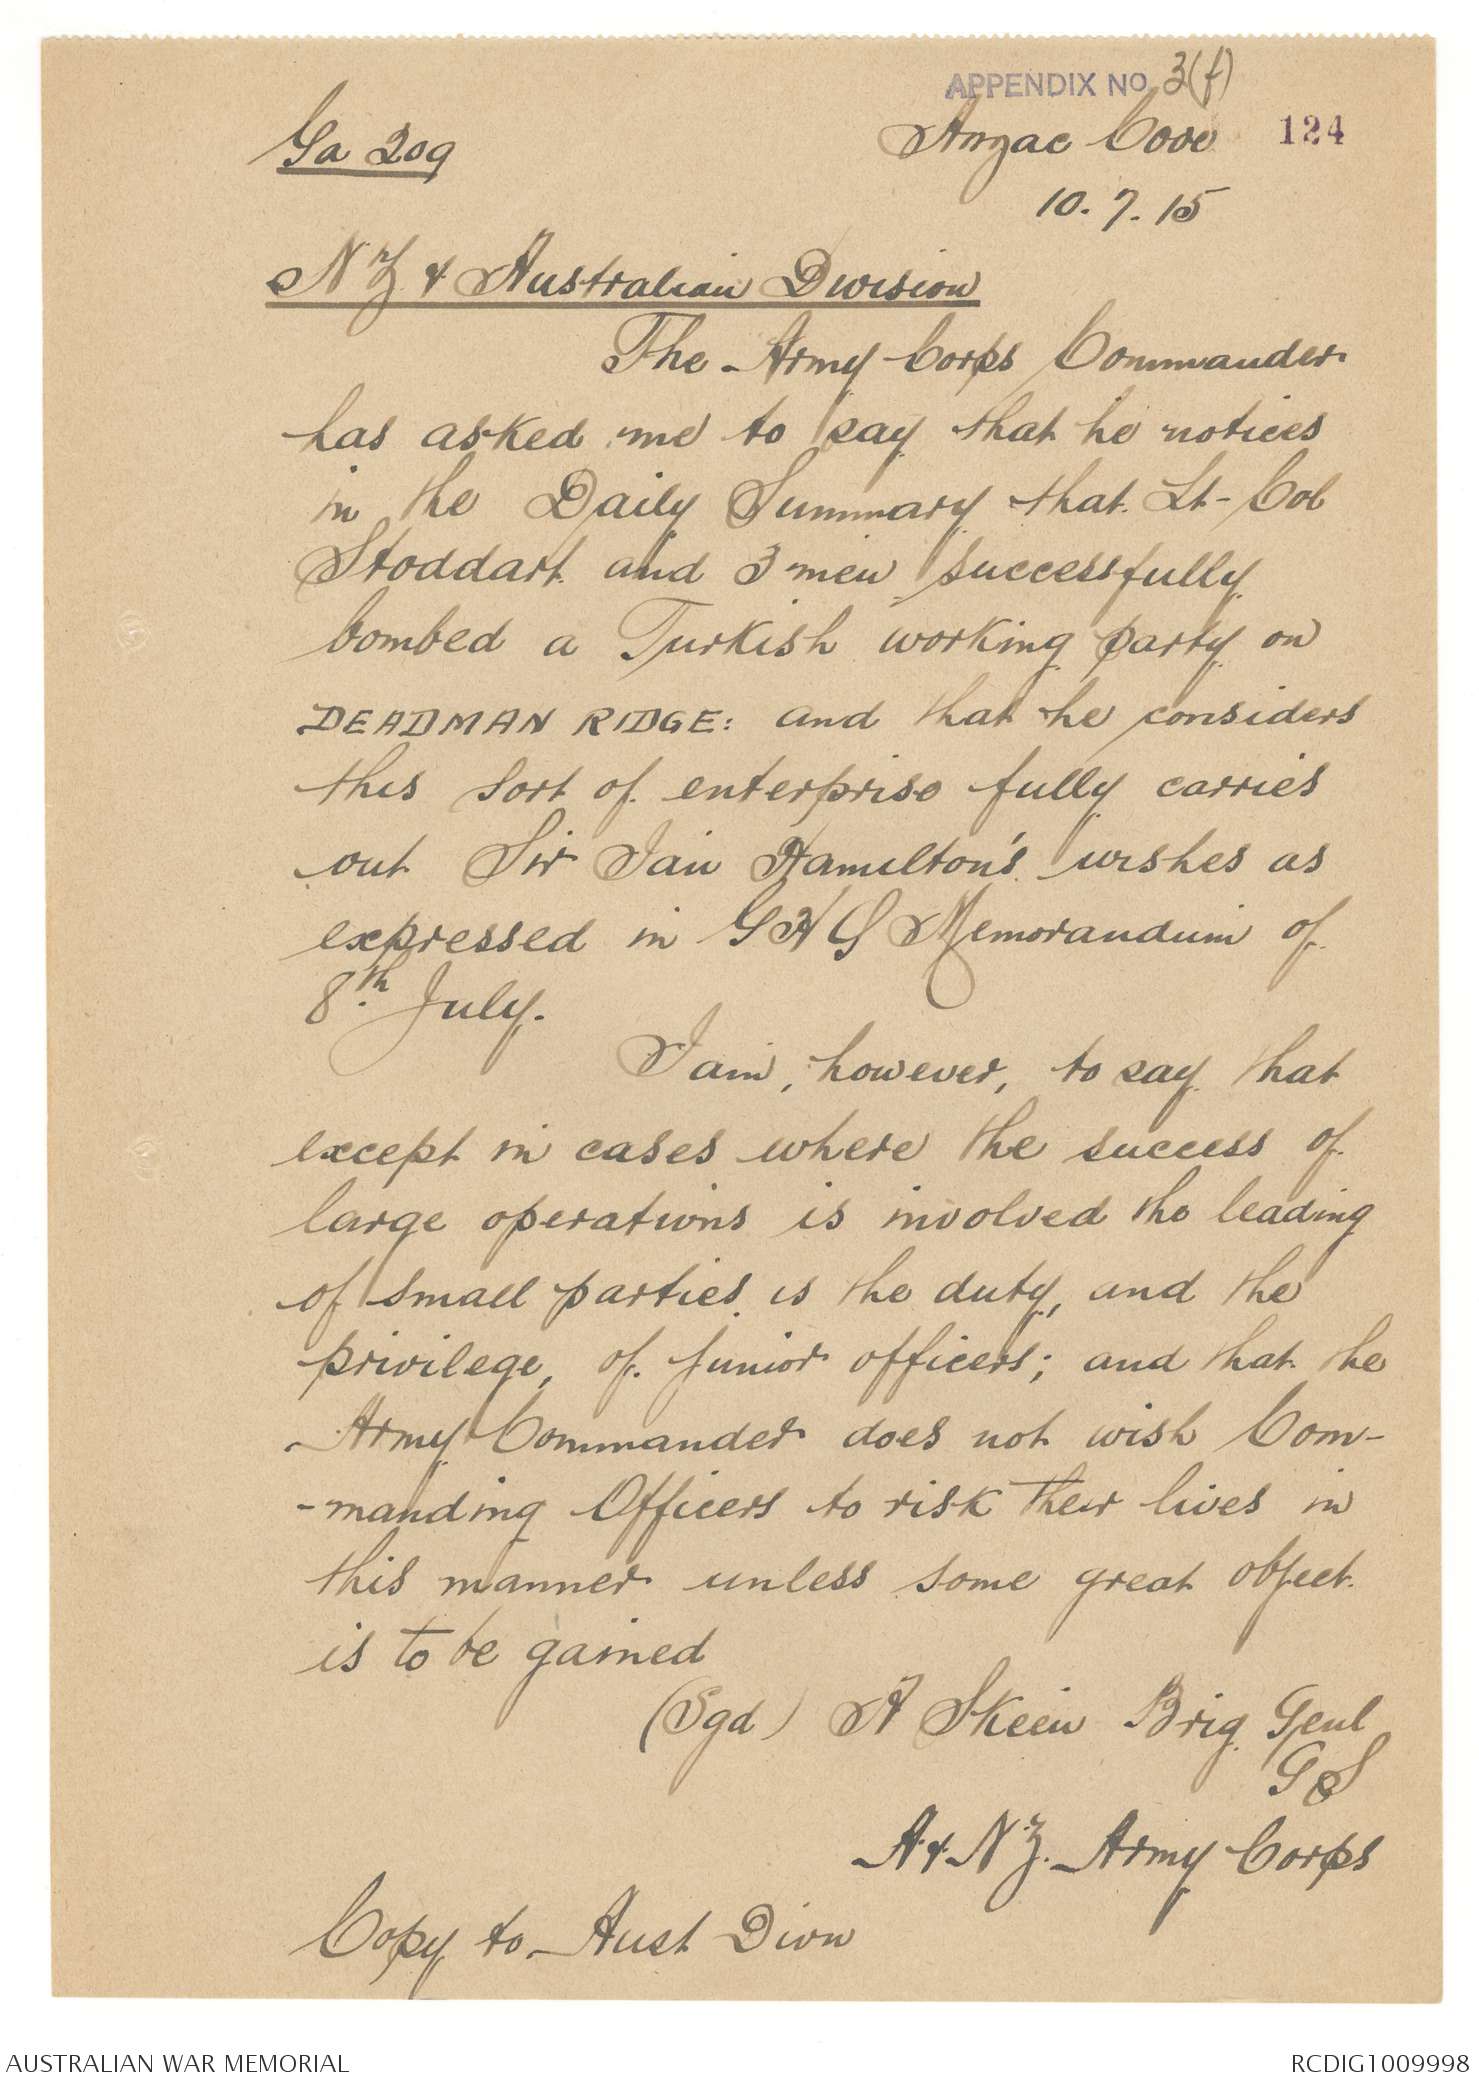 APPENDIX NO 3(f)
Ga 209
Anzac Cove
124
10.7.15
NZ & Australian Division
The Army Corps Commander
has asked me to say that he notices
in the Daily Summary that Lt-Col
Stoddart and 3 men successfully
bombed a Turkish working party on
DEADMAN RIDGE: and that he considers
this sort of enterprise fully carries
out Sir Ian Hamilton's wishes as
expressed in GHQ Memorandum of
8th July.
I am, however, to say that
except in cases where the success of
large operations is involved the leading
of small parties is the duty, and the
privilege, of junior officers; and that the
Army Commander does not wish Com-
-manding Officers to risk their lives in
this manner unless some great object
is to be gained
(Sgd) A Skeen Brig Genl
GS
A & NZ. Army Corps
Copy to Aust Divn
AUSTRALIAN WAR MEMORIAL
RCDIG1009998